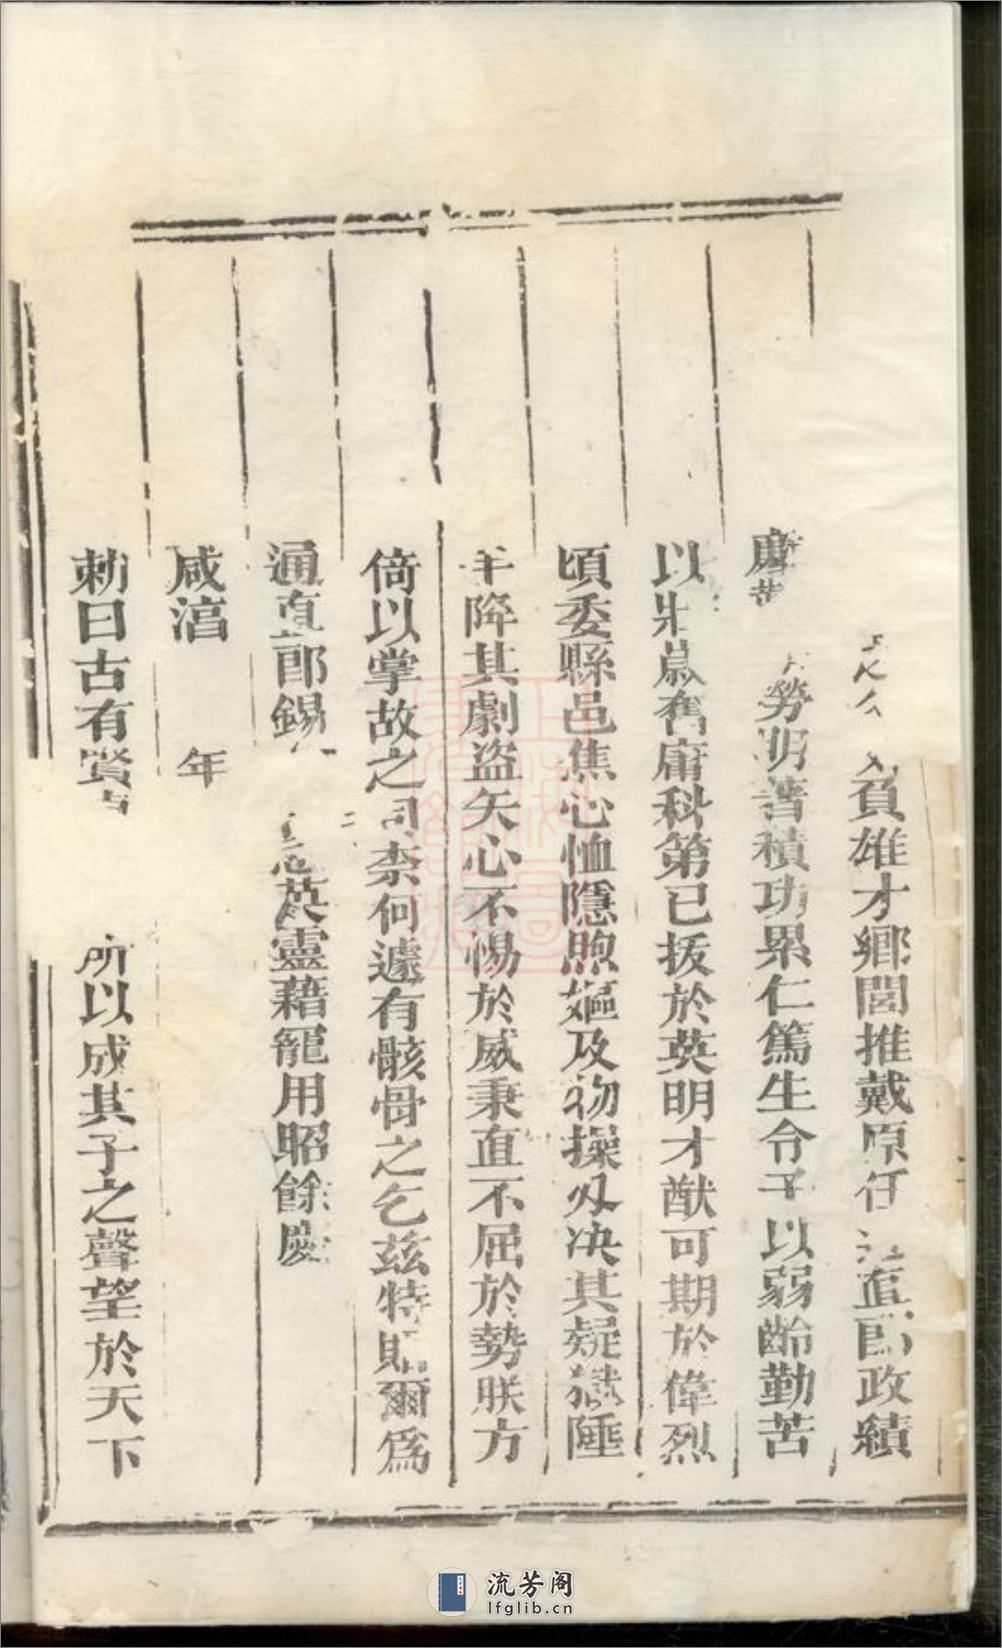 負雄才鄉閭推戴原任 直郎政績
勞明著積功累仁篤生令子以弱齡勤苦
以 舊庸科第已拔於英明才猷可期於偉烈
頃委縣邑焦心恤隱煦嫗及物操 决其疑獄陲
降其劇盜矢心不惕於威秉直不屈於勢朕方
倚以掌故之司柰何遽有骸骨之乞兹特贈爾爲
通直郎錫 英靈藉寵用昭餘慶
咸淳 年
勅曰古有賢 所以成其子之聲望於天下
流芳阁
lfglib.cn